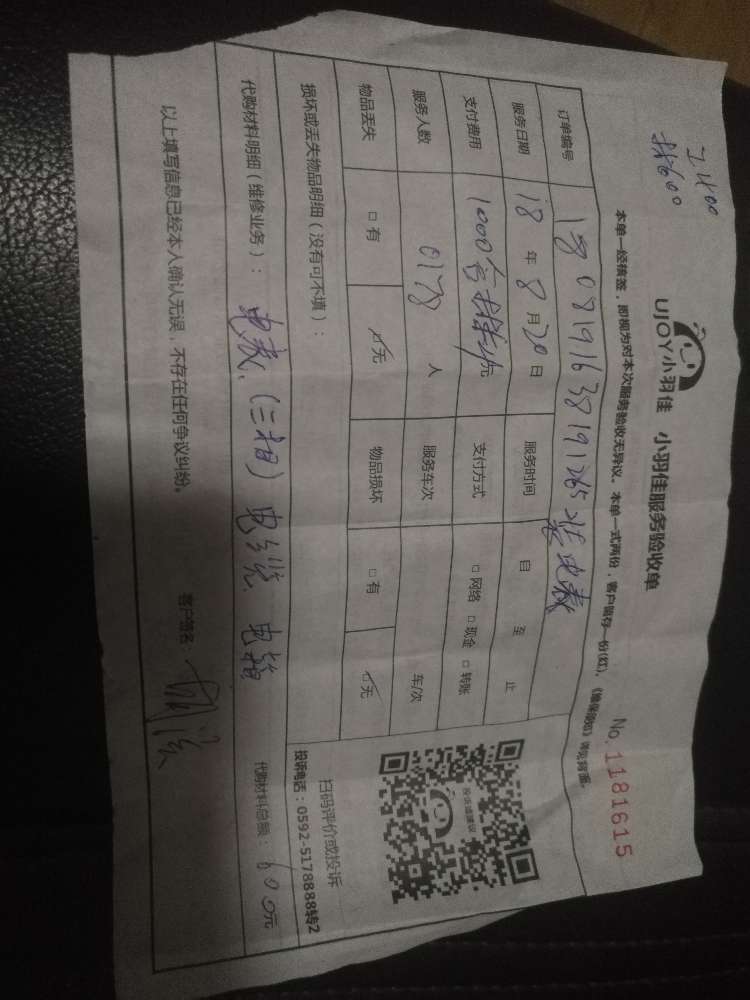 2400
材600
UJOY小羽佳 小羽佳服务验收单
No.1181615
本单一经核签，即视为对本次服务验收无异议。本单一式两份，客户留存一份(红)。《维保须知》详见背面。
订单编号 装电表
服务日期 18 年 8 月 20 日 服务时间 自 至 止
支付费用 1000 元 支付方式 □ 网络 □ 现金 □ 转账
服务人数 人 服务车次 车/次
物品丢失 □ 有 ☑ 无 物品损坏 □ 有 ☑ 无
损坏或丢失物品明细（没有可不填）：
投诉或建议
扫码评价或投诉
投诉电话：0592-5178888转2
代购材料明细（维修业务）： 电表.（三相）电缆. 电箱 代购材料总额： 600 元
以上填写信息已经本人确认无误，不存在任何争议纠纷。 客户签名：